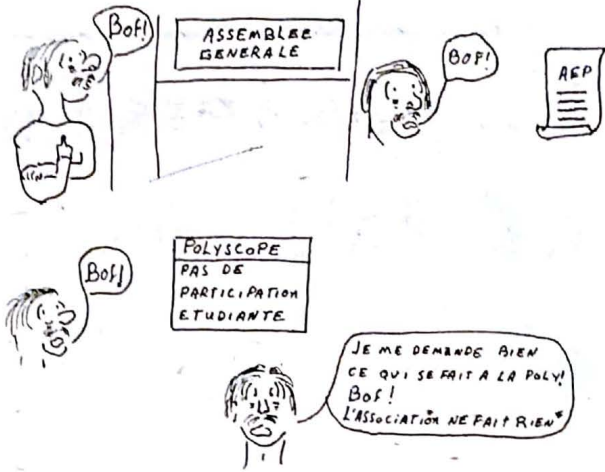 Bof!
ASSEMBLEE
GENERALE
BOF!
AEP
Bof!
POLYSCOPE
PAS DE
PARTICIPATION
ETUDIANTE
JE ME DEMANDE BIEN
CE QUI SE FAIT A LA POLY!
Bof!
L'ASSOCIATION NE FAIT RIEN"